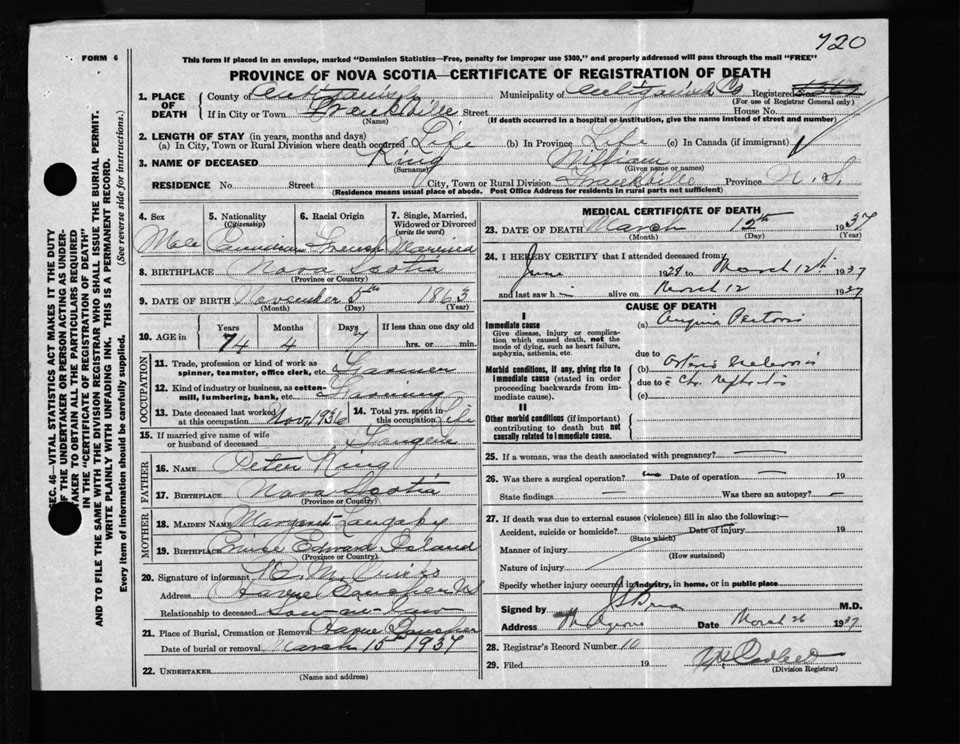 720
FORM 6
This form if placed in an envelope, marked "Dominion Statistics—Free, penalty for improper use $300," and properly addressed will pass through the mail "FREE"
PROVINCE OF NOVA SCOTIA—CERTIFICATE OF REGISTRATION OF DEATH
1. PLACE OF DEATH
County of Antigonish Municipality of Antigonish Co Registered No.
(For use of Registrar General only)
If in City or Town Frankville Street House No.
(Name) (If death occurred in a hospital or institution, give the name instead of street and number)
2. LENGTH OF STAY (in years, months and days)
(a) In City, Town or Rural Division where death occurred Life (b) In Province Life (c) In Canada (if immigrant)
3. NAME OF DECEASED King William
(Surname) (Given name or names)
RESIDENCE No Street City, Town or Rural Division Frankville Province N.S.
(Residence means usual place of abode. Post Office Address for residents in rural parts not sufficient)
4. Sex 5. Nationality (Citizenship) 6. Racial Origin 7. Single, Married, Widowed or Divorced (write the word)
Male Canadian French Married
8. BIRTHPLACE Nova Scotia
(Province or Country)
9. DATE OF BIRTH November 5th 1863
(Month) (Day) (Year)
10. AGE in Years Months Days If less than one day old
74 4 7 hrs. or min.
OCCUPATION
11. Trade, profession or kind of work as spinner, teamster, office clerk, etc. Farmer
12. Kind of industry or business, as cotton-mill, lumbering, bank, etc. Farming
13. Date deceased last worked at this occupation Nov, 1936 14. Total yrs. spent in this occupation Life
15. If married give name of wife or husband of deceased
FATHER
16. NAME Peter King
17. BIRTHPLACE Nova Scotia
(Province or Country)
MOTHER
18. MAIDEN NAME Margaret
19. BIRTHPLACE Prince Edward Island
(Province or Country)
20. Signature of informant
Address Havre Boucher N.S.
Relationship to deceased Son-in-law
21. Place of Burial, Cremation or Removal Havre Boucher
Date of burial or removal March 15 1937
22. UNDERTAKER
(Name and address)
MEDICAL CERTIFICATE OF DEATH
23. DATE OF DEATH March 12th 1937
(Month) (Day) (Year)
24. I HEREBY CERTIFY that I attended deceased from
June 1928 to March 12th 1937
and last saw h alive on March 12 1937
CAUSE OF DEATH
I
Immediate cause
Give disease, injury or complication which caused death, not the mode of dying, such as heart failure, asphyxia, asthenia, etc.
(a) Angina Pectoris
due to
Morbid conditions, if any, giving rise to immediate cause (stated in order proceeding backwards from immediate cause).
(b)
due to Chr. Nephritis
(c)
II
Other morbid conditions (if important) contributing to death but not causally related to immediate cause.
25. If a woman, was the death associated with pregnancy? —
26. Was there a surgical operation? no Date of operation — 19
State findings — Was there an autopsy? —
27. If death was due to external causes (violence) fill in also the following:—
Accident, suicide or homicide? Date of injury 19
(State which)
Manner of injury
(How sustained)
Nature of injury
Specify whether injury occurred in industry, in home, or in public place
Signed by M.D.
Address Date March 26 1937
28. Registrar's Record Number 10
29. Filed 19
(Division Registrar)
SEC. 46—VITAL STATISTICS ACT MAKES IT THE DUTY
OF THE UNDERTAKER OR PERSON ACTING AS UNDER-
TAKER TO OBTAIN ALL THE PARTICULARS REQUIRED
IN THE "CERTIFICATE OF REGISTRATION OF DEATH"
AND TO FILE THE SAME WITH THE DIVISION REGISTRAR WHO SHALL ISSUE THE BURIAL PERMIT.
WRITE PLAINLY WITH UNFADING INK. THIS IS A PERMANENT RECORD.
Every item of information should be carefully supplied. (See reverse side for instructions.)